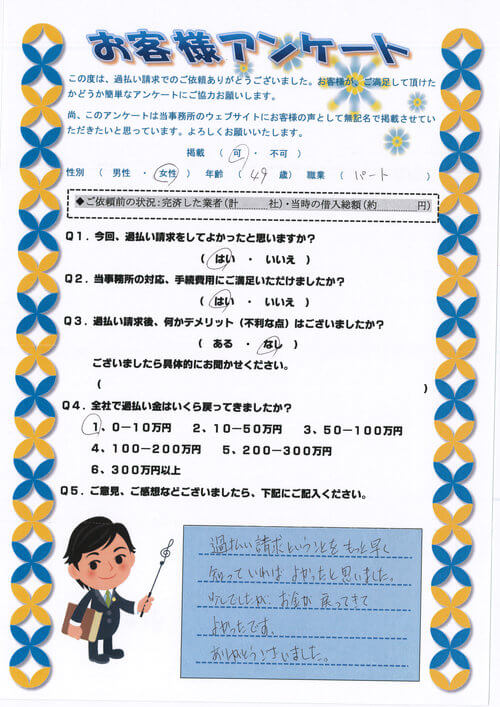 お客様アンケート
この度は、過払い請求でのご依頼ありがとうございました。お客様が、ご満足して頂けた
かどうか簡単なアンケートにご協力お願いします。
尚、このアンケートは当事務所のウェブサイトにお客様の声として無記名で掲載させてい
ただきたいと思っています。よろしくお願いいたします。
掲載 （ 可 ・ 不可 ）
性別 （ 男性 ・ 女性 ） 年齢 （ 49 歳） 職業 （ パート ）
◆ご依頼前の状況：完済した業者（計 社）・当時の借入総額（約 円）
Q1．今回、過払い請求をしてよかったと思いますか？
（ はい ・ いいえ ）
Q2．当事務所の対応、手続費用にご満足いただけましたか？
（ はい ・ いいえ ）
Q3．過払い請求後、何かデメリット（不利な点）はございましたか？
（ ある ・ なし ）
ございましたら具体的にお聞かせください。
（ ）
Q4．全社で過払い金はいくら戻ってきましたか？
1、0－10万円 2、10－50万円 3、50－100万円
4、100－200万円 5、200－300万円
6、300万円以上
Q5．ご意見、ご感想などございましたら、下記にご記入ください。
過払い請求ということをもっと早く
知っていれば よかったと思いました。
少しでしたが、お金が戻ってきて
よかったです。
ありがとうございました。